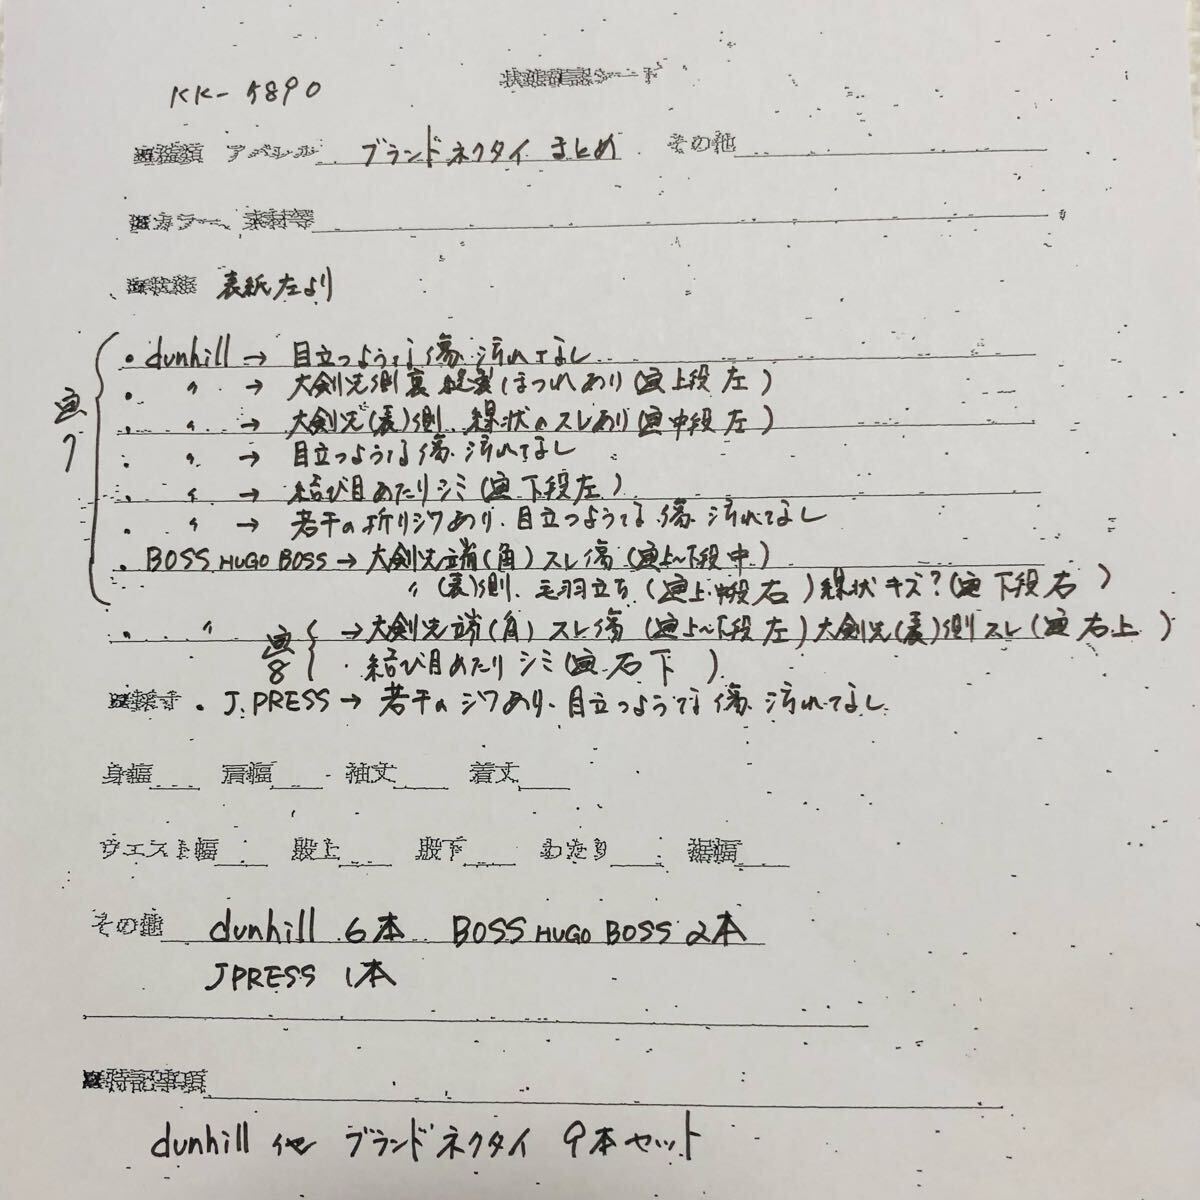 状態確認シート
KK-5890
※種類 アパレル ブランドネクタイ まとめ その他
※カラー、素材等
※状態 表紙左より
画7
・dunhill → 目立つような傷、汚れなし
・ 〃 → 大剣先側裏 縦裏ほつれあり(画上段左)
・ 〃 → 大剣先(表)側 線状のスレあり(画中段左)
・ 〃 → 目立つような傷、汚れなし
・ 〃 → 結び目あたりシミ(画下段左)
・ 〃 → 若干の折りジワあり、目立つような傷、汚れなし
・BOSS HUGO BOSS → 大剣先端(角)スレ傷(画上~下段中)
〃(表)側、毛羽立ち(画上・中段右)線状キズ?(画下段右)
・ 〃 画8 → 大剣先端(角)スレ傷(画上~下段左)大剣先(表)側スレ(画右上)
・結び目あたりシミ(画右下)
※採寸 ・J.PRESS → 若干のジワあり、目立つような傷、汚れなし
身幅 肩幅 袖丈 着丈
ウエスト幅 股上 股下 わたり 裾幅
その他 dunhill 6本 BOSS HUGO BOSS 2本
J PRESS 1本
※特記事項
dunhill 他 ブランドネクタイ 9本セット